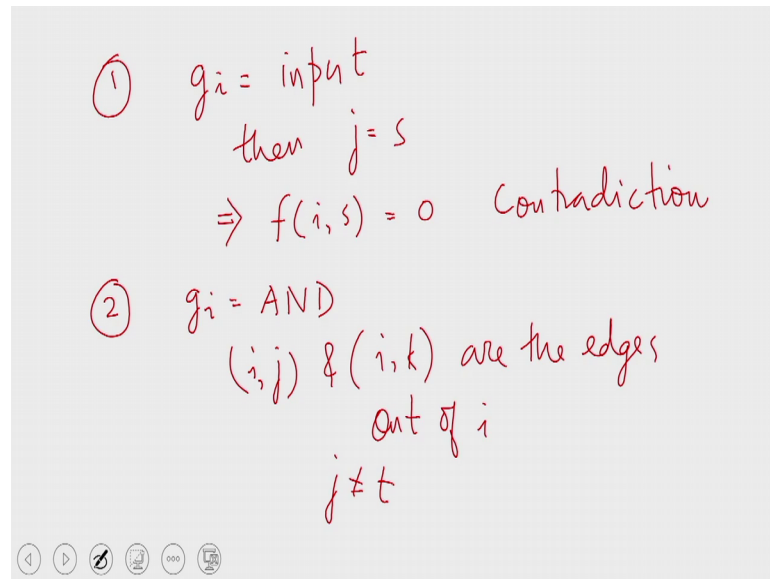 ① gi = input
then j = s
⇒ f(i, s) = 0 Contradiction
② gi = AND
(i, j) & (i, k) are the edges
out of i
j ≠ t